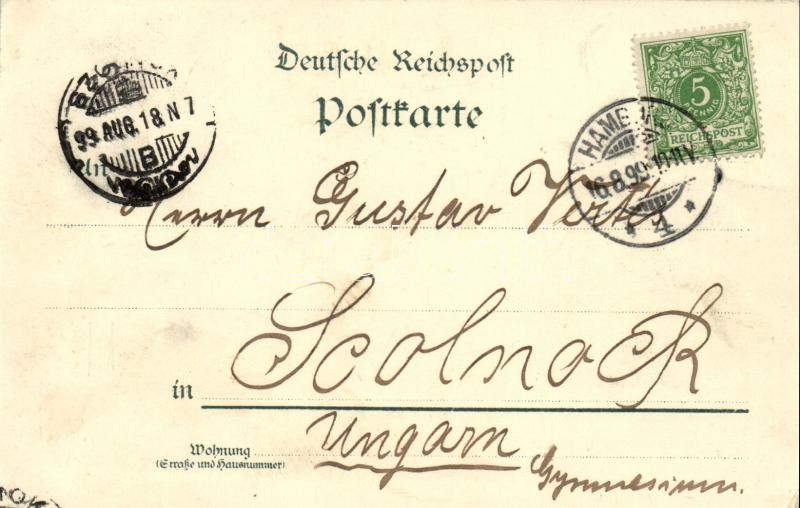 Deutsche Reichspost
Postkarte
5
REICHSPOST
99 AUG. 18. N 7
B
HAMB
16.8.99. 10-11 V.
* 4 *
An
Herrn Gustav
Scolnock
in
Ungarn
Wohnung
(Straße und Hausnummer)
Gymnasium.